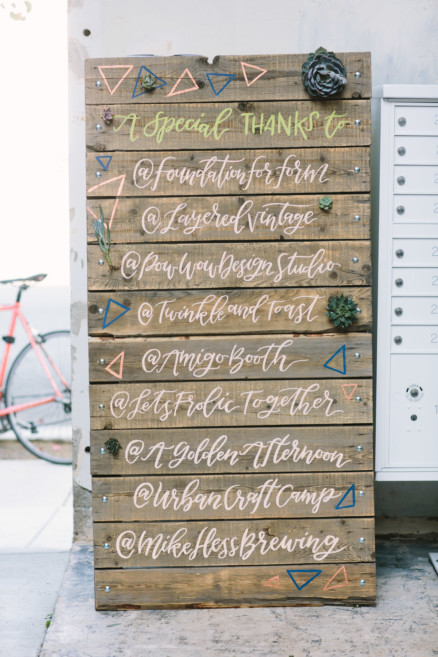 A Special THANKS to
@FoundationforForm
@LayeredVintage
@PowWowDesignStudio
@TwinkleandToast
@AmigoBooth
@LetsFrolicTogether
@AGoldenAfternoon
@UrbanCraftCamp
@MikeHessBrewing